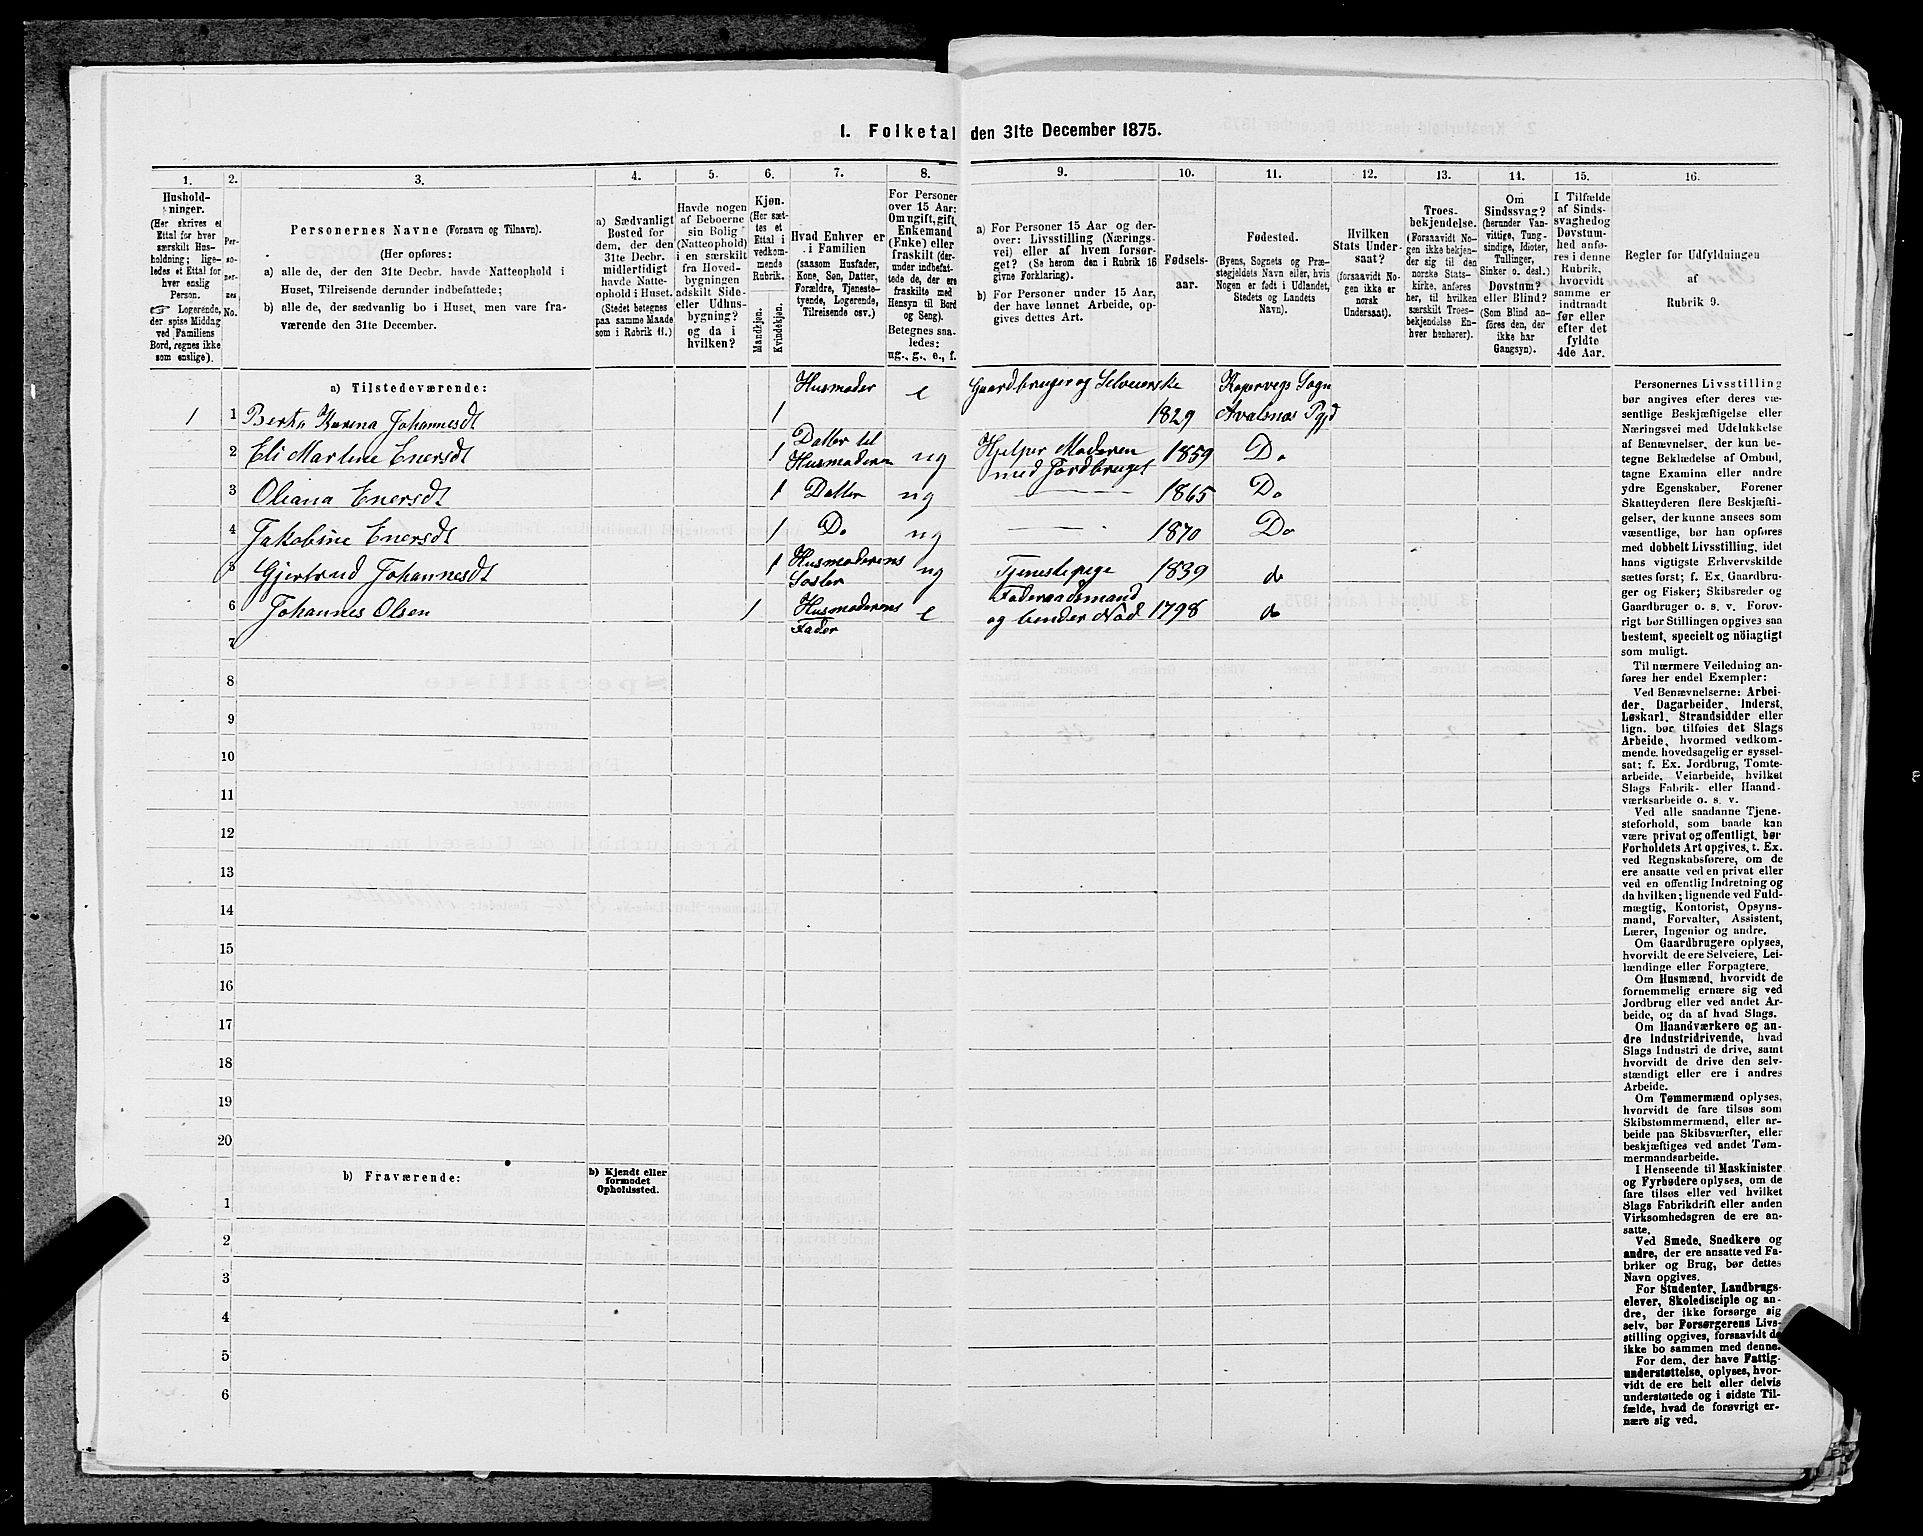 1. Folketal den 31te December 1875.
1.
2.
3.
4.
5.
6.
7.
8.
9.
10.
11.
12.
13.
14.
15.
16.
Hushold-
ninger.
(Her skrives et
Ettal for hver
særskilt Hus-
holdning; lige-
ledes et Ettal for
hver enslig
Person.
☞ Logerende,
der spise Middag
ved Familiens
Bord, regnes ikke
som enslige).
Per-
so-
ner-
nes
No.
Personernes Navne (Fornavn og Tilnavn).
(Her opføres:
a) alle de, der den 31te Decbr. havde Natteophold i
Huset, Tilreisende derunder indbefattede;
b) alle de, der sædvanlig bo i Huset, men vare fra-
værende den 31te December.
a) Sædvanligt
Bosted for
dem, der den
31te Decbr.
midlertidigt
havde Natte-
ophold i Huset.
(Stedet betegnes
paa samme Maade
som i Rubrik 11.)
Havde nogen
af Beboerne
sin Bolig
(Natteophold)
i en særskilt
fra Hoved-
bygningen
adskilt Side-
eller Udhus-
bygning?
og da i
hvilken?
Kjøn.
(Her sæt-
tes et
Ettal i
vedkom-
mende
Rubrik.
Mandkjøn.
Kvindekjøn.
Hvad Enhver er
i Familien
(saasom Husfader,
Kone, Søn, Datter,
Forældre, Tjeneste-
tyende, Logerende,
Tilreisende osv.)
For Personer
over 15 Aar:
Om ugift, gift,
Enkemand
(Enke) eller
fraskilt (der-
under indbefat-
tede de, der ere
fraskilte med
Hensyn til Bord
og Seng).
Betegnes saa-
ledes:
ug., g., e., f.
a) For Personer 15 Aar og der-
over: Livsstilling (Nærings-
vei) eller af hvem forsør-
get? (Se herom den i Rubrik 16
givne Forklaring).
b) For Personer under 15 Aar,
der have lønnet Arbeide, op-
gives dettes Art.
Fødsels-
aar.
Fødested.
(Byens, Sognets og Præ-
stegjeldets Navn eller, hvis
Nogen er født i Udlandet,
Stedets og Landets
Navn).
Hvilken
Stats Under-
saat?
(forsaavidt No-
gen ikke er
norsk
Undersaat).
Troes-
bekjendelse.
(Forsaavidt No-
gen ikke bekjen-
der sig til den
norske Stats-
kirke, anføres
her, til hvilken
særskilt Troes-
bekjendelse En-
hver henhører).
Om
Sindssvag?
(herunder Van-
vittige, Tung-
sindige, Idioter,
Tullinger,
Sinker o. desl.)
Døvstum?
eller Blind?
(Som Blind an-
føres den, der
ikke har
Gangsyn).
I Tilfælde
af Sinds-
svaghed og
Døvstum-
hed anfø-
res i denne
Rubrik,
hvorvidt
samme er
indtraadt
før eller
efter det
fyldte
4de Aar.
Regler for Udfyldningen
af
Rubrik 9.
a) Tilstedeværende:
1 1 Berta Karina Johannesdt 1 Husmoder e Gaardbruger og Selveierske 1829 Kopervigs Sogn
Avalsnæs Pgjd
2 Eli Martine Enersdt 1 Datter til
Husmoderen ug Hjelper Moderen
med Jordbruget 1859 Do
3 Oliana Enersdt 1 Datter ug 1865 Do
4 Jakobine Enersdt 1 Do ug 1870 Do
5 Gjertrud Johannesdt 1 Husmoderens
Søster ug Tjenestepige 1839 do
6 Johannes Olsen 1 Husmoderens
Fader e Føderaadsmand
og bender Nod 1798 do
7
8
9
10
11
12
13
14
15
16
17
18
19
20
b) Fraværende:
b) Kjendt eller
formodet
Opholdssted.
1
2
3
4
5
6
Personernes Livsstilling
bør angives efter deres væ-
sentlige Beskjæftigelse eller
Næringsvei med Udelukkelse
af Benævnelser, der kun be-
tegne Beklædelse af Ombud,
tagne Examina eller andre
ydre Egenskaber. Forener
Skatteyderen flere Beskjæfti-
gelser, der kunne ansees som
væsentlige, bør han opføres
med dobbelt Livsstilling, idet
hans vigtigste Erhvervskilde
sættes først; f. Ex. Gaardbru-
ger og Fisker; Skibsreder og
Gaardbruger o. s. v. Forøv-
rigt bør Stillingen opgives saa
bestemt, specielt og nöiagtigt
som muligt.
Til nærmere Veiledning an-
føres her endel Exempler:
Ved Benævnelserne: Arbei-
der, Dagarbeider, Inderst,
Løskarl, Strandsidder eller
lign. bør tilføies det Slags
Arbeide, hvormed vedkom-
mende, hovedsagelig er syssel-
sat; f. Ex. Jordbrug, Tomte-
arbeide, Veiarbeide, hvilket
Slags Fabrik- eller Haand-
værksarbeide o. s. v.
Ved alle saadanne Tjene-
steforhold, som baade kan
være privat og offentligt, bør
Forholdets Art opgives, t. Ex.
ved Regnskabsførere, om de
ere ansatte ved en privat eller
ved en offentlig Indretning og
da hvilken; lignende ved Fuld-
mægtig, Kontorist, Opsyns-
mand, Forvalter, Assistent,
Lærer, Ingeniør og andre.
Om Gaardbrugere oplyses,
hvorvidt de ere Selveiere, Lei-
lændinge eller Forpagtere.
Om Husmænd, hvorvidt de
fornemmelig ernære sig ved
Jordbrug eller ved andet Ar-
beide, og da af hvad Slags.
Om Haandværkere og an-
dre Industridrivende, hvad
Slags Industri de drive, samt
hvorvidt de drive den selv-
stændigt eller ere i andres
Arbeide.
Om Tømmermænd oplyses,
hvorvidt de fare tilsøs som
Skibstømmermænd, eller ar-
beide paa Skibsværfter, eller
beskjæftiges ved andet Tøm-
mermandsarbeide.
I Henseende til Maskinister
og Fyrbødere oplyses, om de
fare tilsøs eller ved hvilket
Slags Fabrikdrift eller anden
Virksomhedsgren de ere an-
satte.
Ved Smede, Snedkere og
andre, der ere ansatte ved Fa-
briker og Brug, bør dettes
Navn opgives.
For Studenter, Landbrugs-
elever, Skoledisciple og an-
dre, der ikke forsørge sig
selv, bør Forsørgerens Livs-
stilling opgives, forsaavidt de
ikke bo sammen med denne.
For dem, der have Fattig-
understøttelse, oplyses, hvor-
vidt de ere helt eller delvis
understøttede og i sidste Til-
fælde, hvad de forøvrigt er-
nære sig ved.